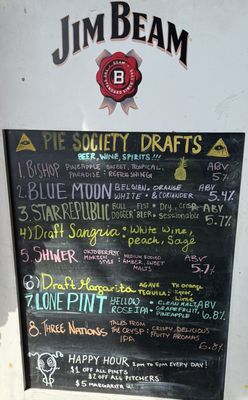 JIM BEAM
B
PIE SOCIETY DRAFTS
BEER, WINE, SPIRITS!!!
1. BISHOP PINEAPPLE SWEET, TROPICAL, ABV
PARADISE • REFRESHING 5%
2. BLUE MOON BELGIAN, ORANGE ABV
WHITE • & CORIANDER 5.4%
3. STAR REPUBLIC FISH • Dry, Crisp ABV
DOGGER BEER • Sessionable 5.7%
4) Draft Sangria: White Wine,
peach, Sage
5. SHINER OKTOBERFEST, MEDIUM BODIED ABV
MARZEN AMBER, SWEET
STYLE MALTS 5.7%
6) Draft Margarita AGAVE
TEQUILA orange
lime
7. LONE PINT YELLOW • CLEAN MALT ABV
ROSE IPA • GRAPEFRUIT,
PINEAPPLE 6.8%
8. THREE NATIONS TALES FROM CRISP, DELICIOUS
THE CRISP: FRUITY AROMAS
IPA 6.8%
HAPPY HOUR 2pm to 6pm EVERY DAY!
$1 OFF ALL PINTS
$2 OFF ALL PITCHERS
$5 MARGARITA